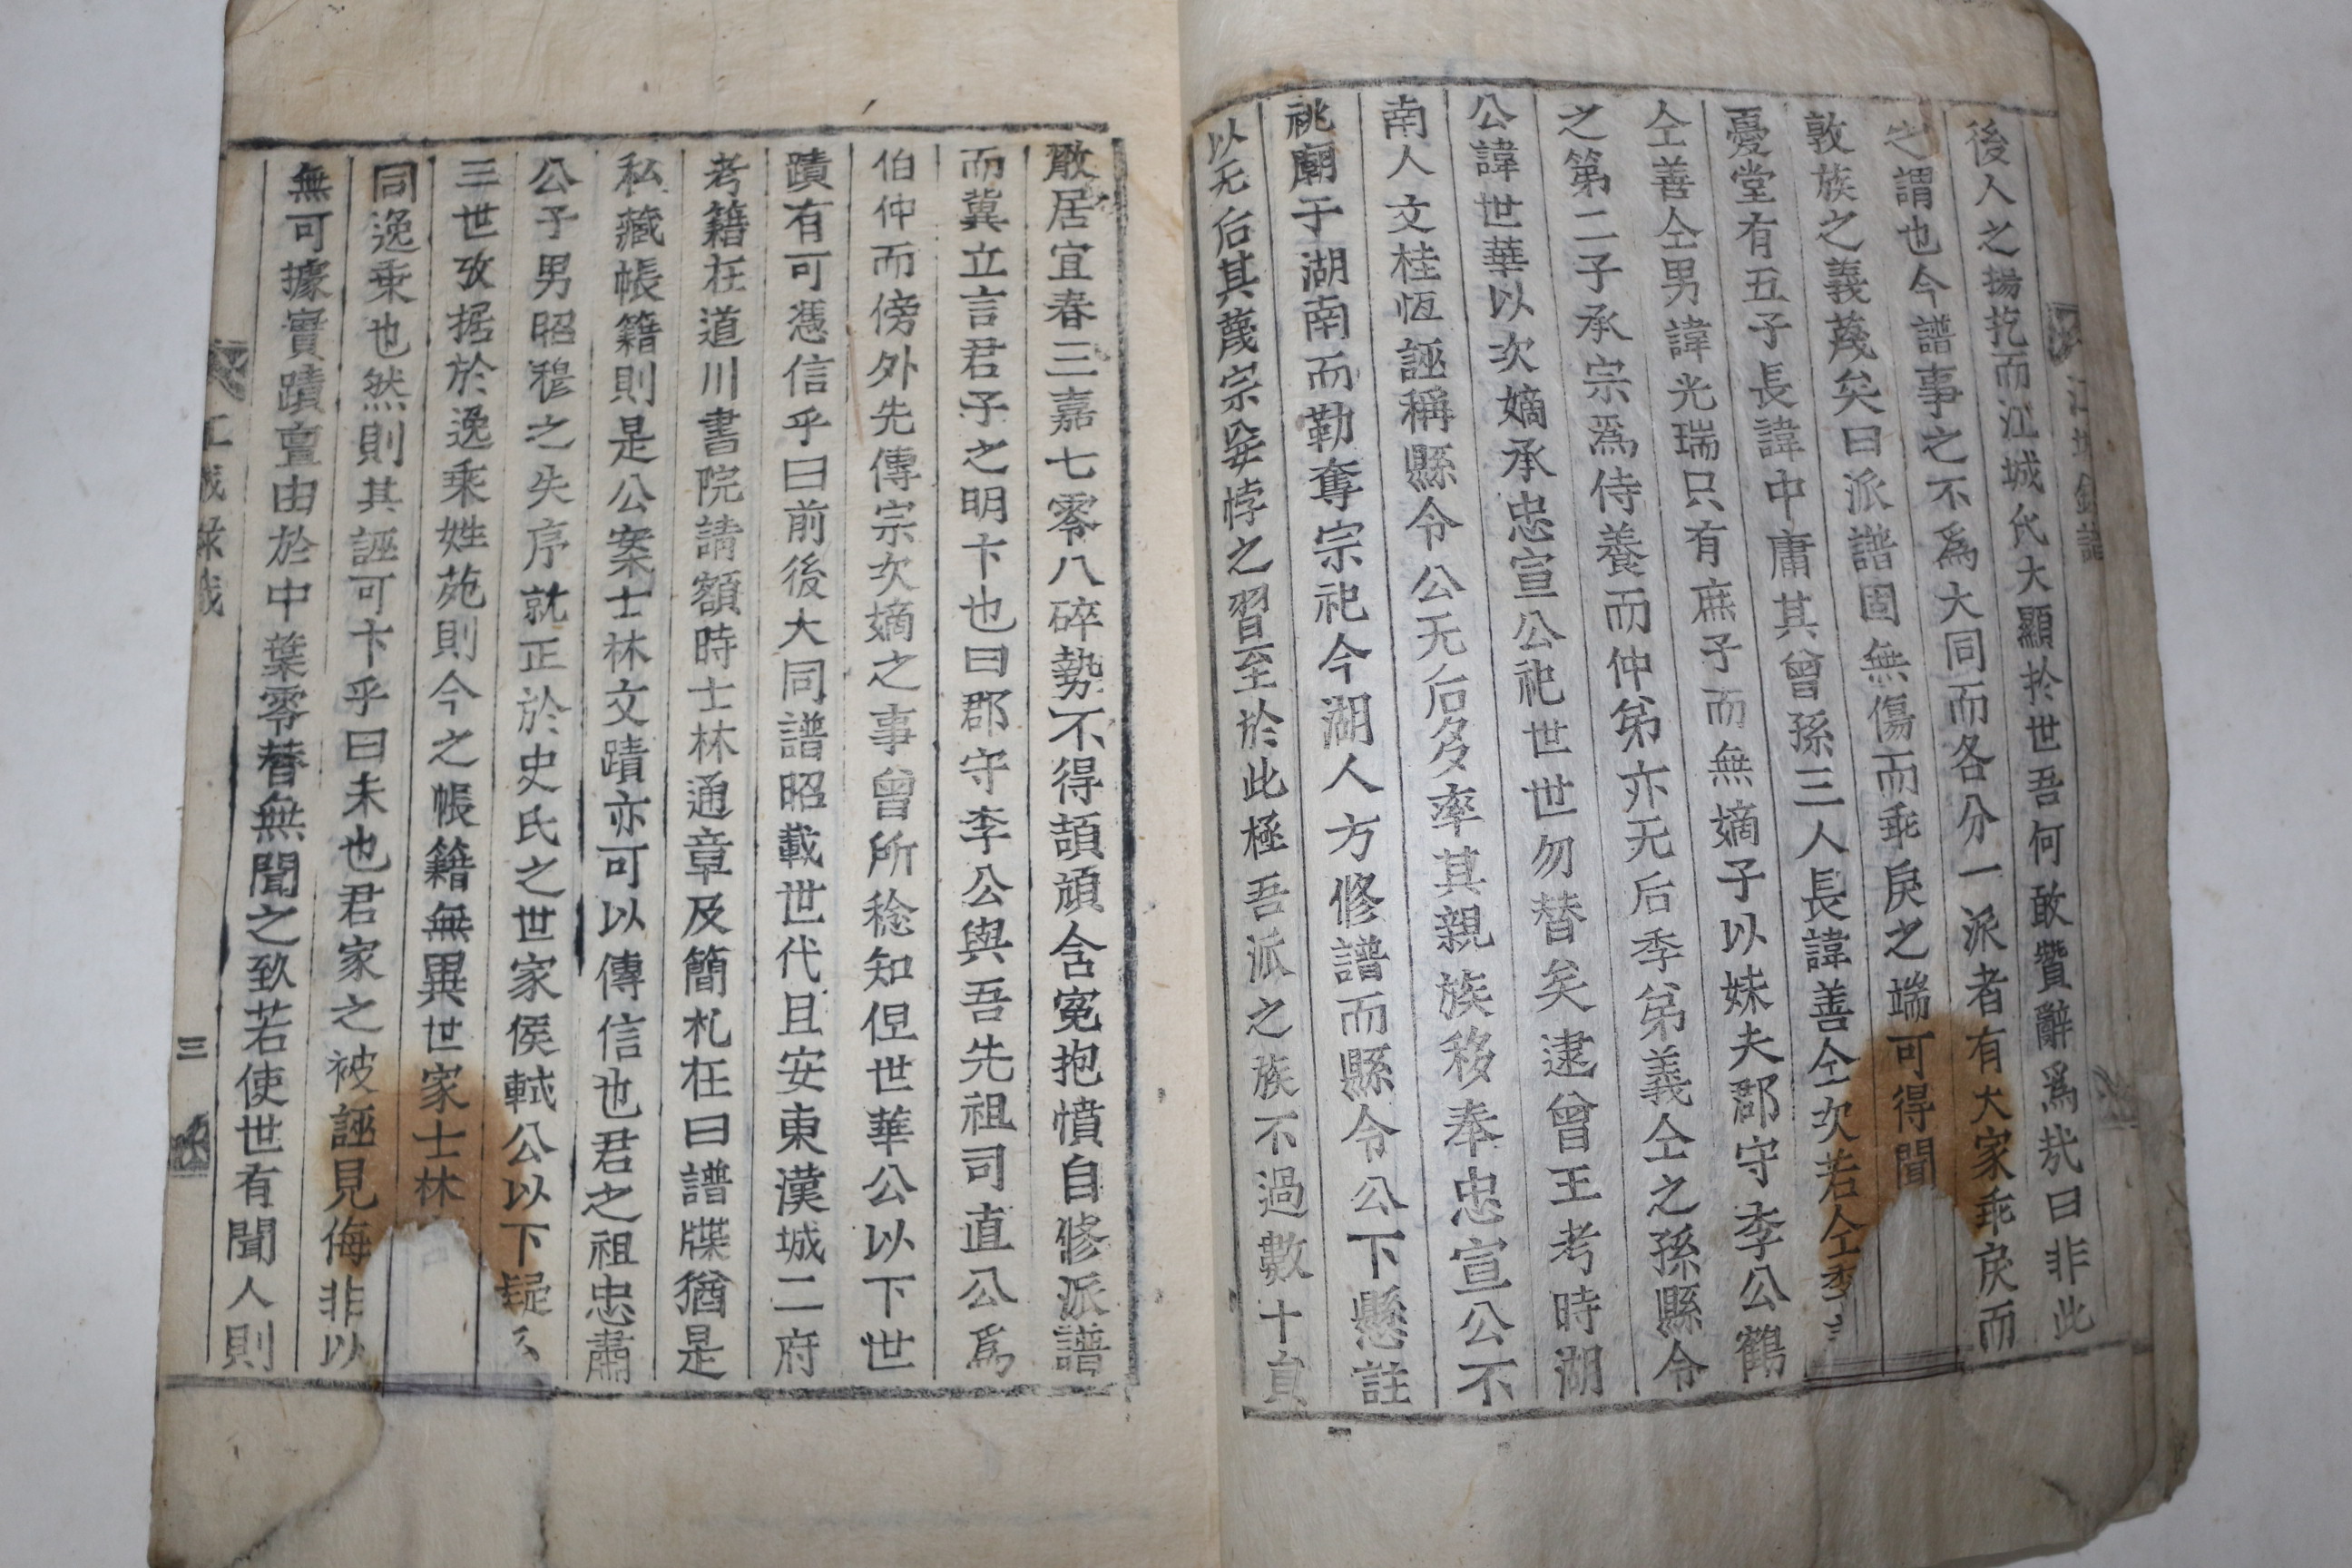 後人之揚扢而江城代大顯於世吾何敢贊辭爲㢤曰非此
之謂也今譜事之不爲大同而各分一派者有大家乖戾而
敦族之義蔑矣曰派譜固無傷而乖戾之端可得聞
憂堂有五子長諱中庸其曾孫三人長諱善仝次若仝季
仝善仝男諱光瑞只有庶子而無嫡子以妹夫郡守李公鶴
之第二子承宗爲侍養而仲弟亦无后季弟義仝之孫縣令
公諱世華以次嫡承忠宣公祀世世勿替矣逮曾王考時湖
南人文桂恆誣稱縣令公无后多率其親族移奉忠宣公不
祧廟于湖南而勒奪宗祀今湖人方修譜而縣令公下懸註
以无后其蔑宗妄悖之習至於此極吾派之族不過數十員
散居宜春三嘉七零八碎勢不得頡頏含寃抱憤自修派譜
而冀立言君子之明卞也曰郡守李公與吾先祖司直公爲
伯仲而傍外先傳宗次嫡之事曾所稔知但世華公以下世
蹟有可憑信乎曰前後大同譜昭載世代且安東漢城二府
考籍在道川書院請額時士林通章及簡札在曰譜牒猶是
私藏帳籍則是公案士林文蹟亦可以傳信也君之祖忠肅
公子男昭穆之失序就正於史氏之世家侯軾公以下疑
三世攷据於逸乘姓苑則今之帳籍無異世家士林
同逸乘也然則其誣可卞乎曰未也君家之被誣見侮非以
無可據實蹟亶由於中葉零替無聞之致若使世有聞人則
三